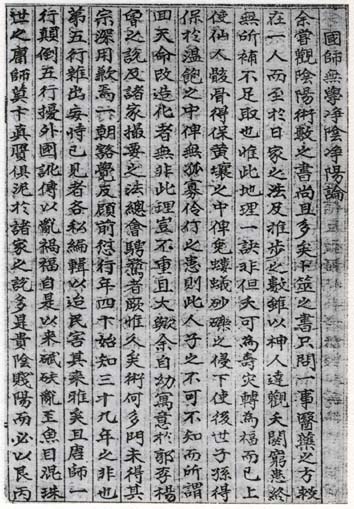 國師無學淨陰淨陽論
余嘗觀陰陽術數之書尚且多矣卜筮之書只問一事醫藥之方救
在一人而至於日家之法及推步之數雖以神人達觀夭閼窮悪終
無所補不足取也惟此地理一訣非但夭可為壽灾轉為福而已上
使仙人骸骨得保黃壤之中俾免螻蟻砂礫之侵下使後世子孫得
保於溫飽之中俾無孤寡伶仃之患則此人子之不可不知而所謂
回天命改造化者無非此理豈不重且大歟余自幼寓意於郭李楊
曾之說及諸家撮要之法總會騁騖者厥惟久矣術何多門未得其
宗深用歎焉一朝豁覺反顧前愆行年四十始知三十九年之非也
第五行雜出妄恃己見者各私編輯以迨民害其來雅矣且唐師一
行顛倒五行擾外國訛傳以亂禍福自是以來碔砆亂玉魚目混珠
世之庸師莫卞真贋俱泥於諸家之說多是貴陰賤陽而必以艮丙